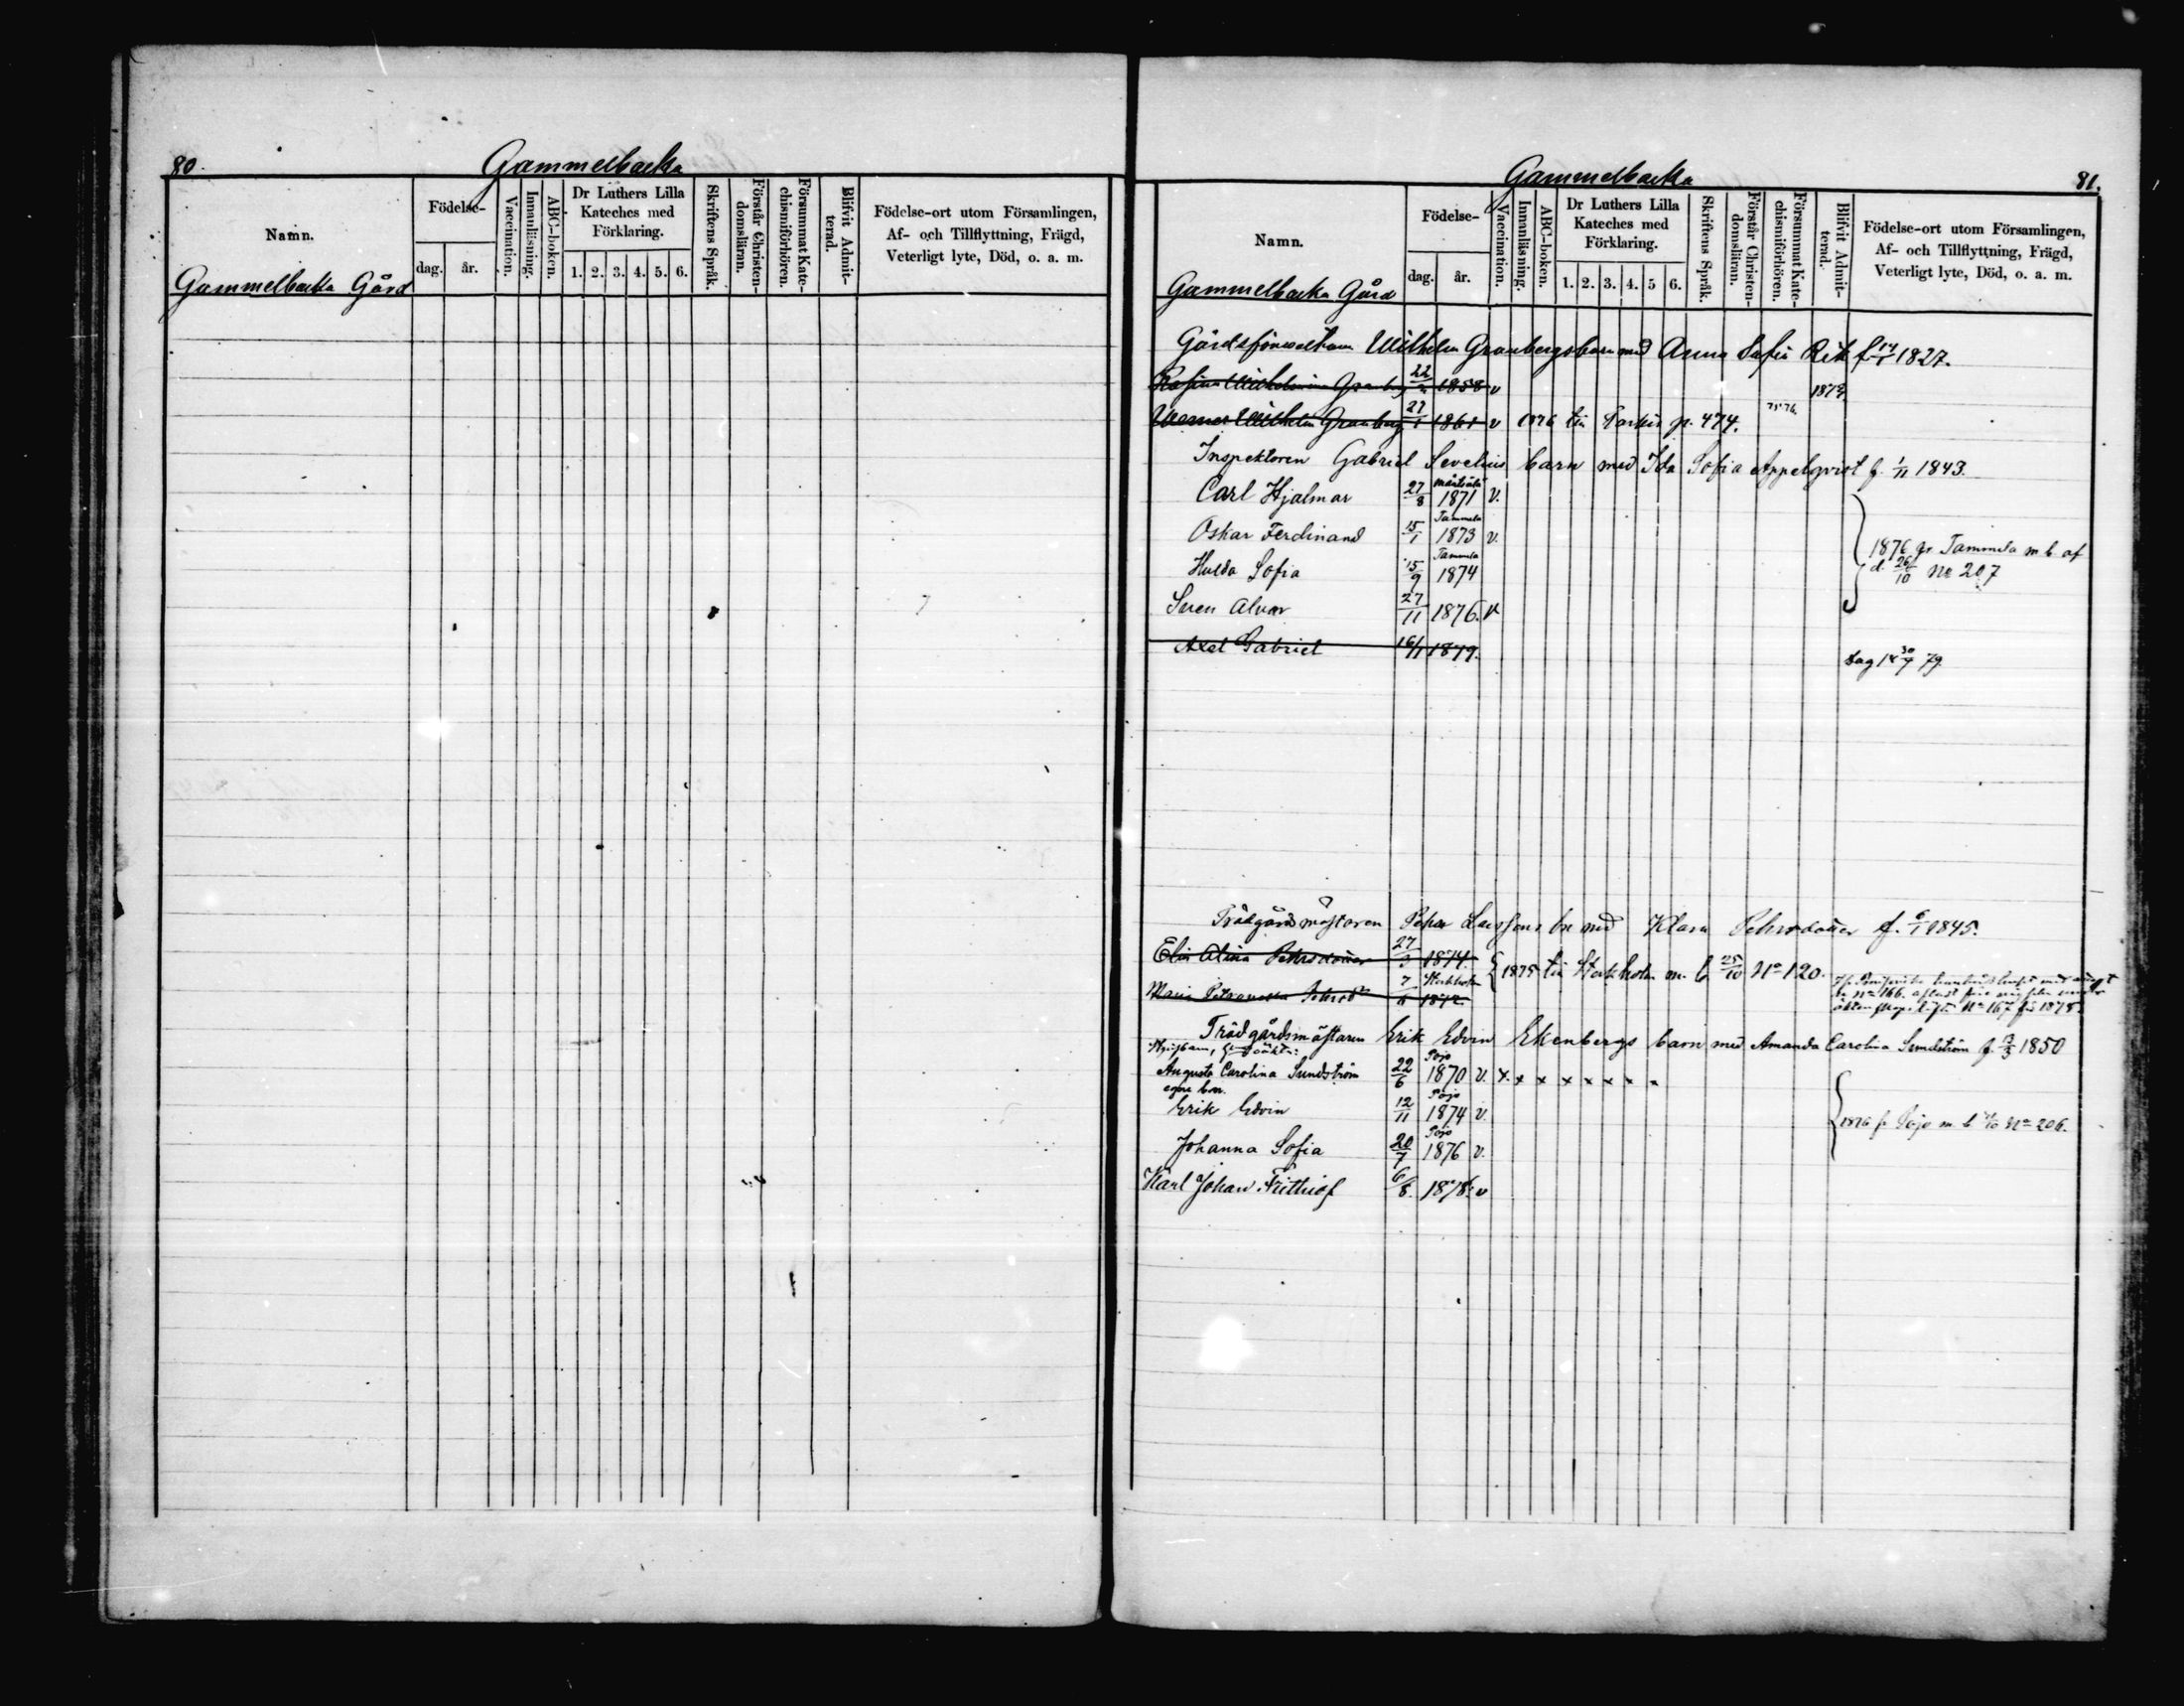 80.
Gammelbacka
Namn.
Födelse-
dag. år.
Vaccination.
Innanläsning.
ABC-boken.
Dr Luthers Lilla
Kateches med
Förklaring.
1. 2. 3. 4. 5. 6.
Skriftens Språk.
Förstår Christen-
domsläran.
Försummat Kate-
chismiförhören.
Blifvit Admit-
terad.
Födelse-ort utom Församlingen,
Af- och Tillflyttning, Frägd,
Veterligt lyte, Död, o. a. m.
Gammelbacka Gård
Gammelbacka
81.
Namn.
Födelse-
dag. år.
Vaccination.
Innanläsning.
ABC-boken.
Dr Luthers Lilla
Kateches med
Förklaring.
1. 2. 3. 4. 5 6.
Skriftens Språk.
Förstår Christen-
domsläran.
Försummat Kate-
chismiförhören.
Blifvit Admit-
terad.
Födelse-ort utom Församlingen,
Af- och Tillflyttning, Frägd,
Veterligt lyte, Död, o. a. m.
Gammelbacka Gård
Wilhelm Granbergs barn med Anna Sofia f. 1827.
Wilhelmina Granberg 22 1858 v
Werner Wilhelm Granberg 27/1 1861 v 1876 p. 474. 75.76.
Inspektoren Gabriel Sevelius barn med Ida Sofia Appelqvist f. 1/11 1843.
Carl Hjalmar 27/8 1871 v.
Oskar Ferdinand 15/1 Tammela 1873 v.
Hulda Sofia 15/9 Tammela 1874
1876 fr Tammela m. b. af
d. 26/10 No 207
Sven Alvar 27/11 1876. v
Axel Gabriel 16/1 1879.
79
Trädgårdsmästaren Larssons bn med Klara Pehrsdotter f. 1845.
Elin Alina Pehrsdotter 27/3 1874.
1875 till Stockholm m. b. 25/10 No 120.
Maria 7 Stockholm 1872
No 166.
No 167 för 1875.
Trädgårdsmästaren Erik Edvin Ekenbergs barn med Amanda Carolina Sundström f. 1850
Augusta Carolina Sundström 22/6 Pojo 1870 v. x. x x x x x x x
egne barn.
Erik Edvin 12/11 Pojo 1874 v.
1876 fr Pojo m. b. No 206.
Johanna Sofia 20/7 Pojo 1876 v.
Karl Johan Frithiof 6/8. 1878. v